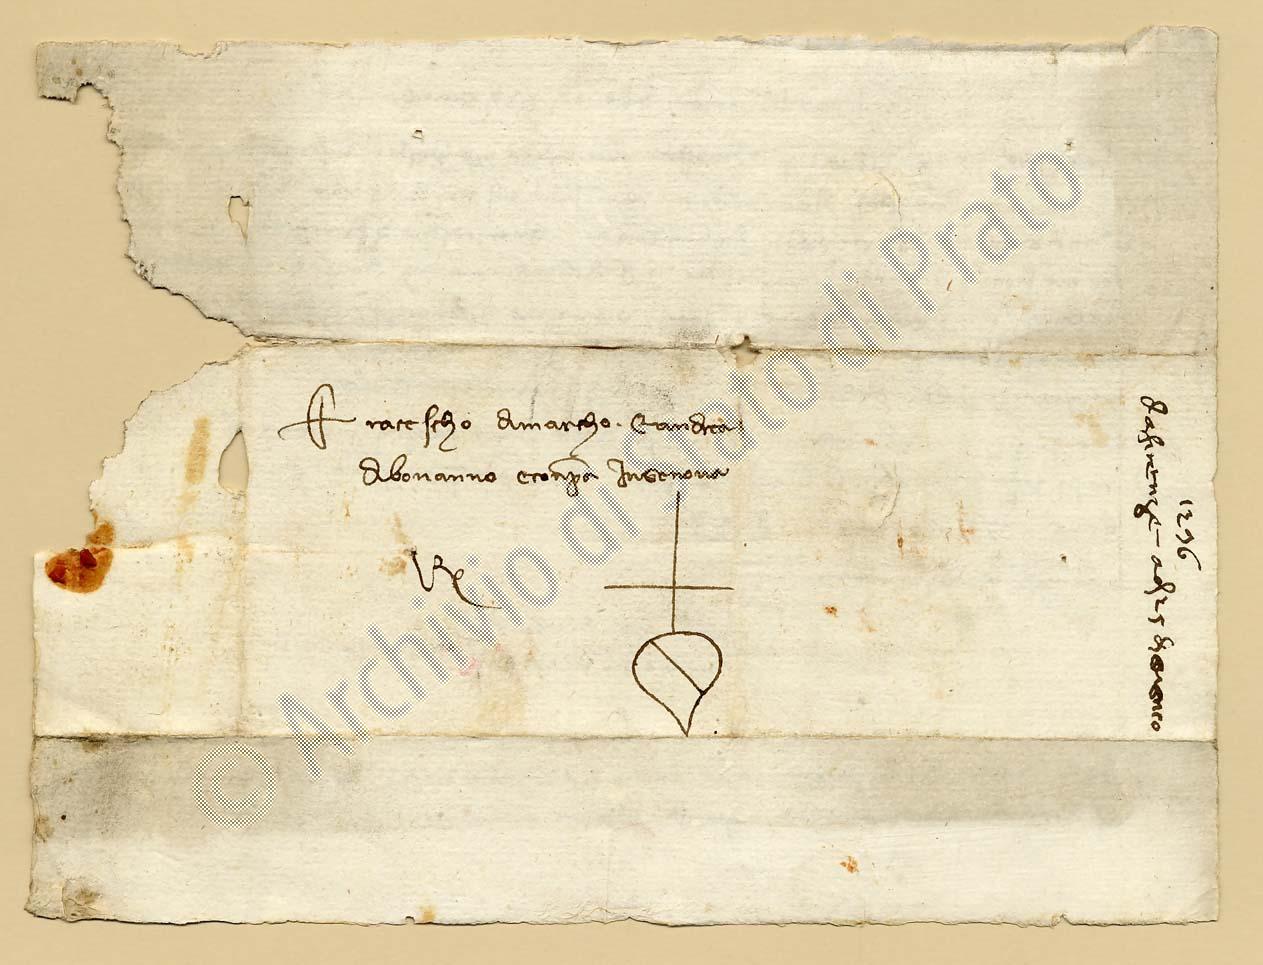 Francescho di marcho e andrea
di bonanno e conpa in genova
1396
da firenze adi 25 di
© Archivio di Stato di Prato